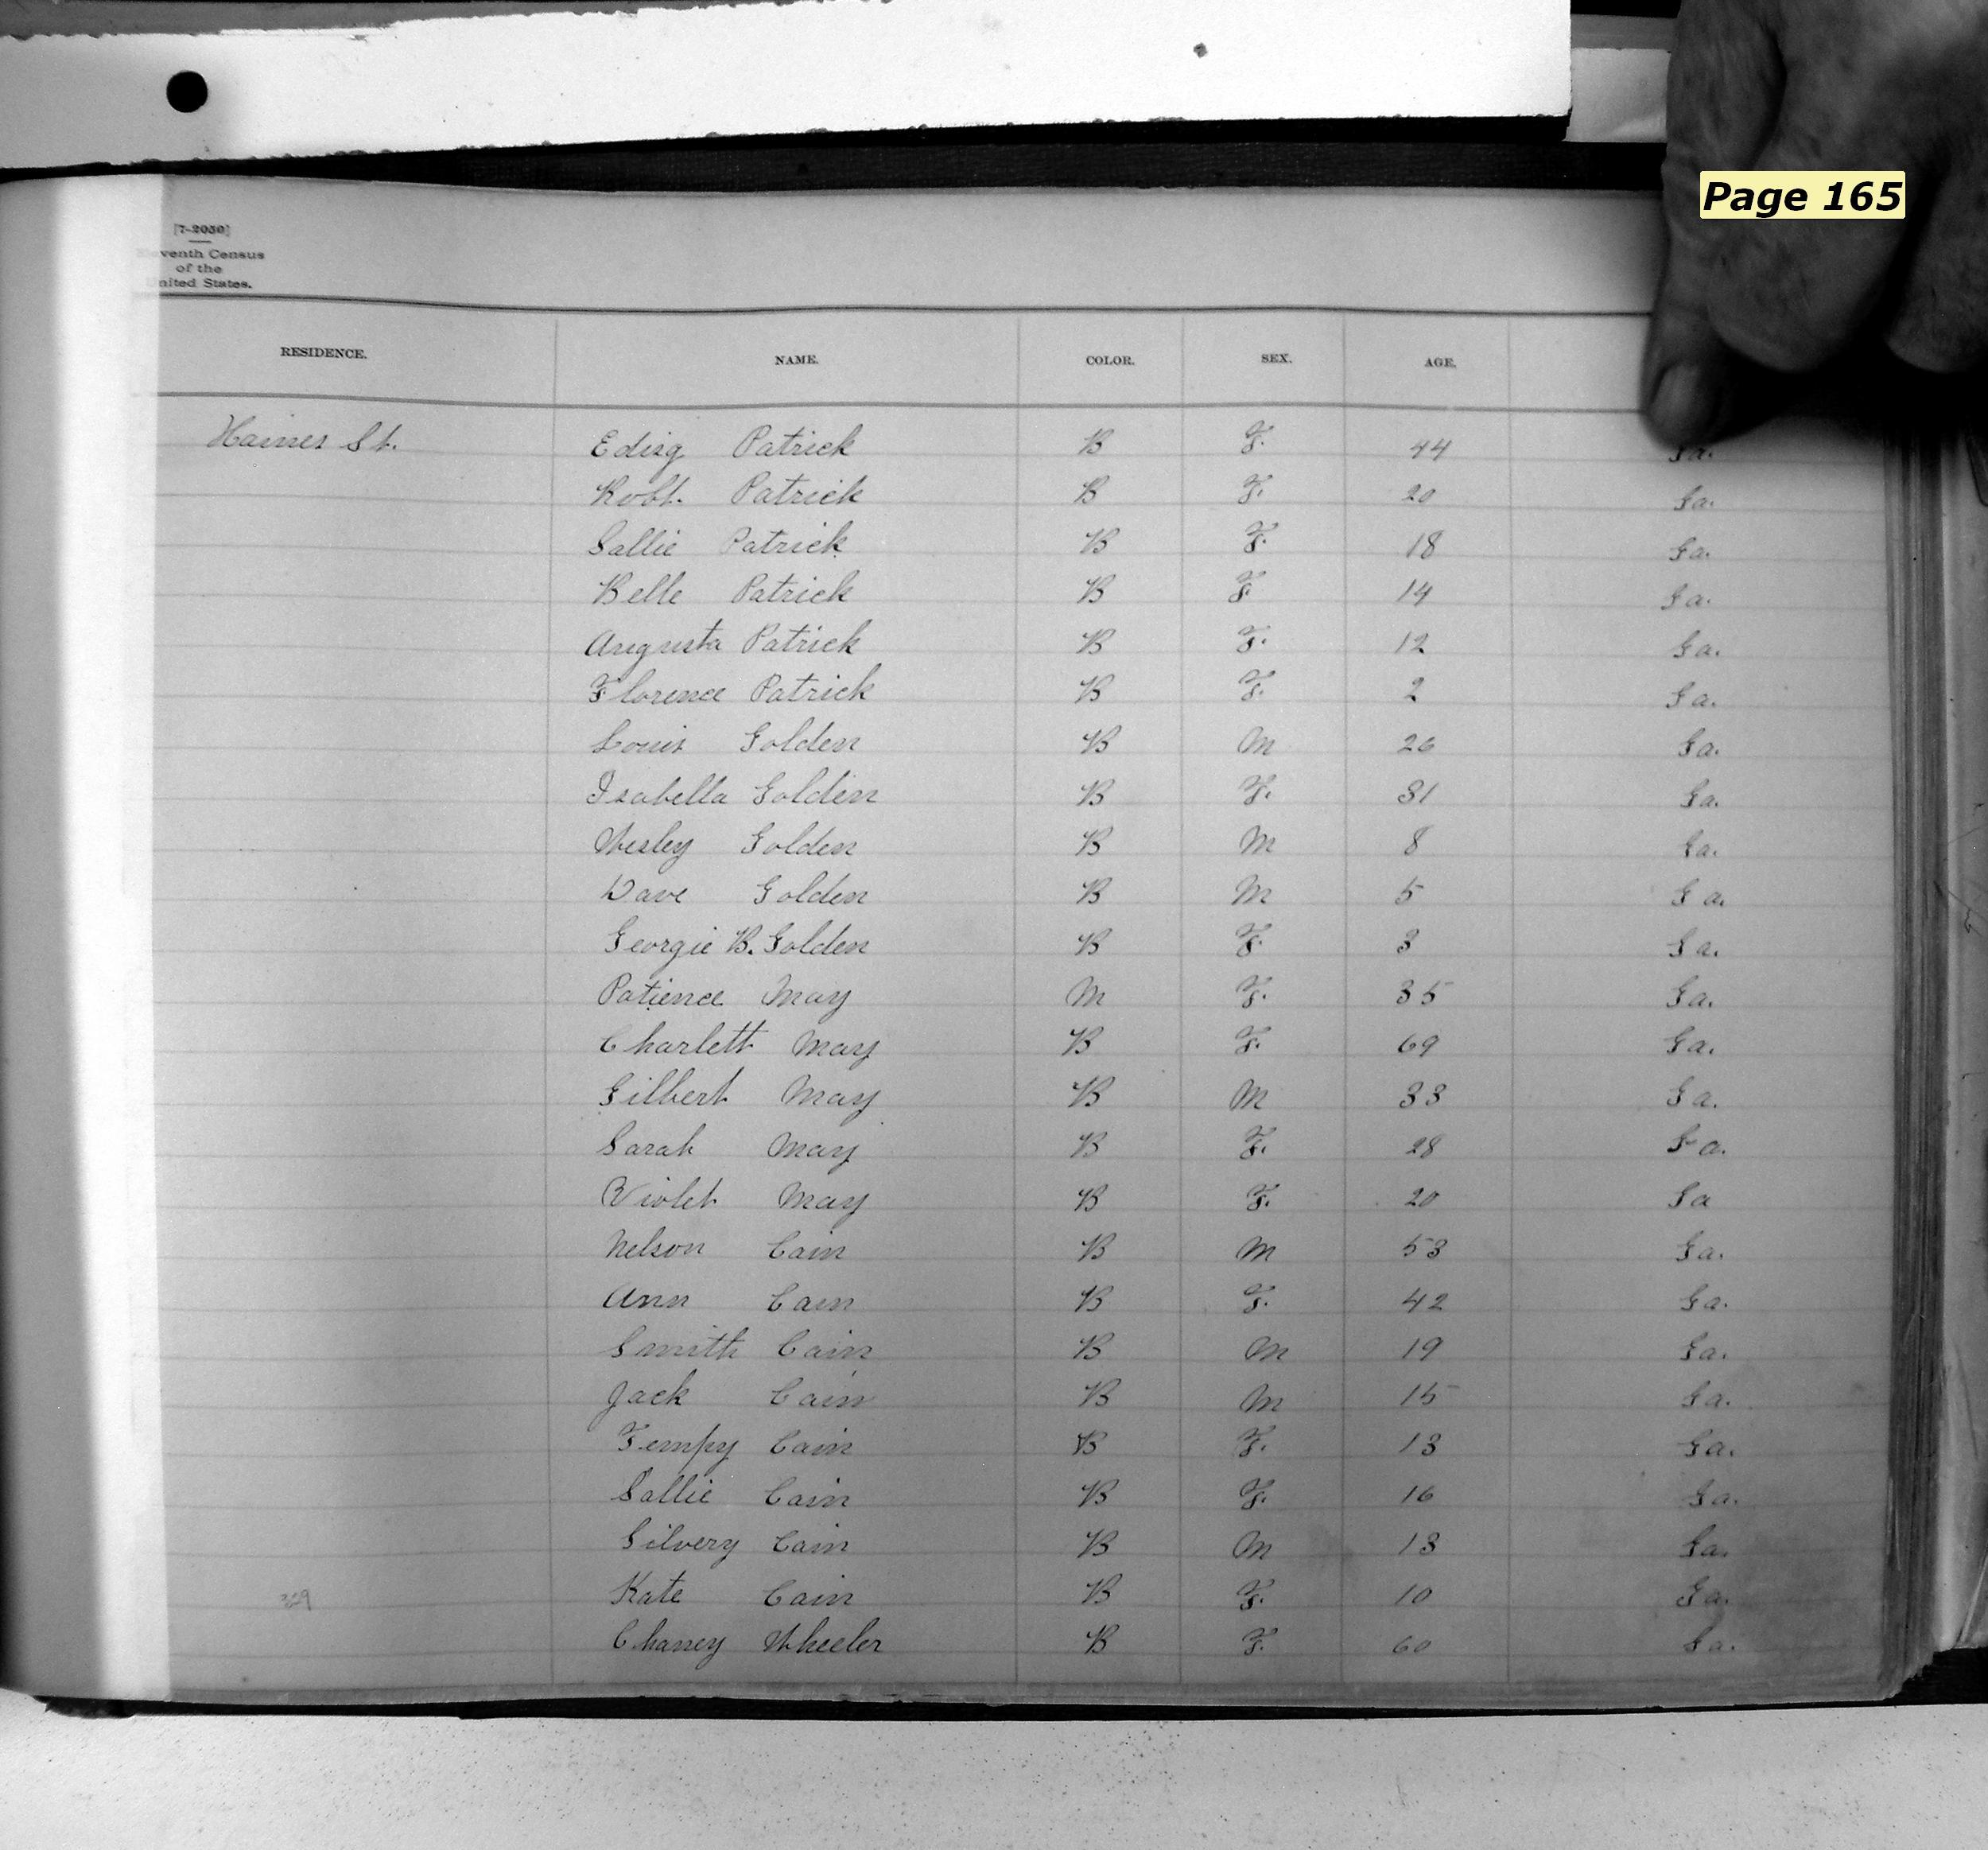 Page 165
[7-2050]
Eleventh Census
of the
United States.
RESIDENCE. NAME. COLOR. SEX. AGE.
Haines St. Edisg Patrick B F. 44 Ga.
Robt. Patrick B F. 20 Ga.
Sallie Patrick B F. 18 Ga.
Belle Patrick B F 14 Ga.
Augusta Patrick B F. 12 Ga.
Florence Patrick B F. 2 Ga.
Louis Golden B M 26 Ga.
Isabella Golden B F. 31 Ga.
Wesley Golden B M 8 Ga.
Dave Golden B M 5 Ga.
Georgie B. Golden B F. 3 Ga.
Patience May M F. 35 Ga.
Charlett May B F. 69 Ga.
Gilbert May B M 33 Ga.
Sarah May B F. 28 Ga.
Violet May B F. 20 Ga
Nelson Cain B M 53 Ga.
Ann Cain B F. 42 Ga.
Smith Cain B M 19 Ga.
Jack Cain B M 15 Ga.
Tempy Cain B F. 13 Ga.
Sallie Cain B F. 16 Ga.
Silvery Cain B M 13 Ga.
Kate Cain B F. 10 Ga.
Chaney Wheeler B F. 60 Ga.